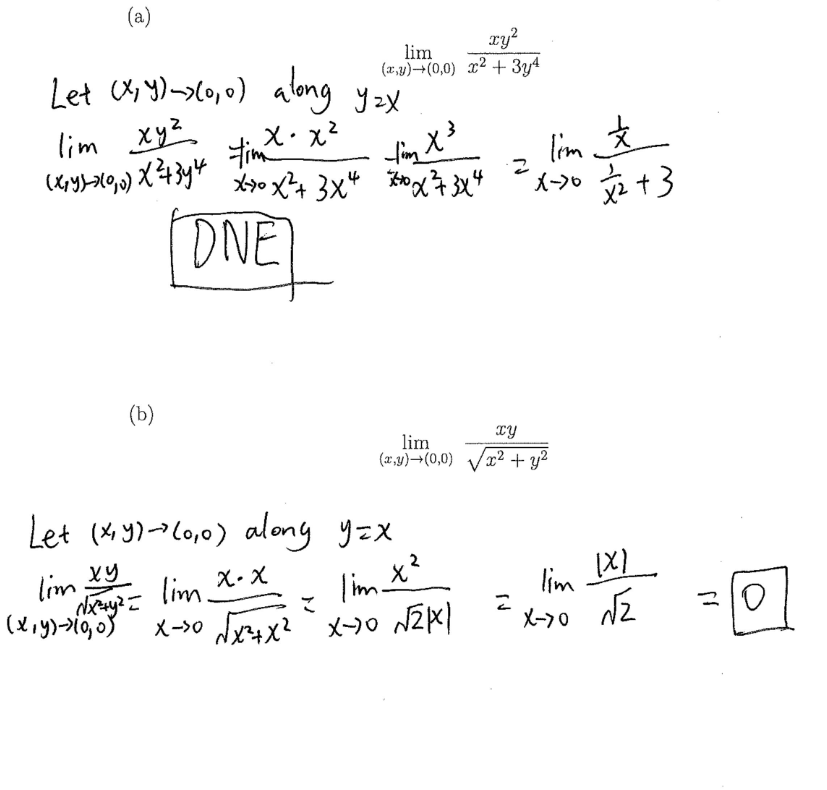 (a)
lim_{(x,y)→(0,0)} \frac{xy^2}{x^2 + 3y^4}
Let (x,y)→(0,0) along y=x
lim_{(x,y)→(0,0)} \frac{xy^2}{x^2+3y^4} = lim_{x→0} \frac{x·x^2}{x^2+3x^4} = lim_{x→0} \frac{x^3}{x^2+3x^4} = lim_{x→0} \frac{\frac{1}{x}}{\frac{1}{x^2}+3}
DNE
(b)
lim_{(x,y)→(0,0)} \frac{xy}{\sqrt{x^2 + y^2}}
Let (x,y)→(0,0) along y=x
lim_{(x,y)→(0,0)} \frac{xy}{\sqrt{x^2+y^2}} = lim_{x→0} \frac{x·x}{\sqrt{x^2+x^2}} = lim_{x→0} \frac{x^2}{\sqrt{2}|x|} = lim_{x→0} \frac{|x|}{\sqrt{2}} = 0